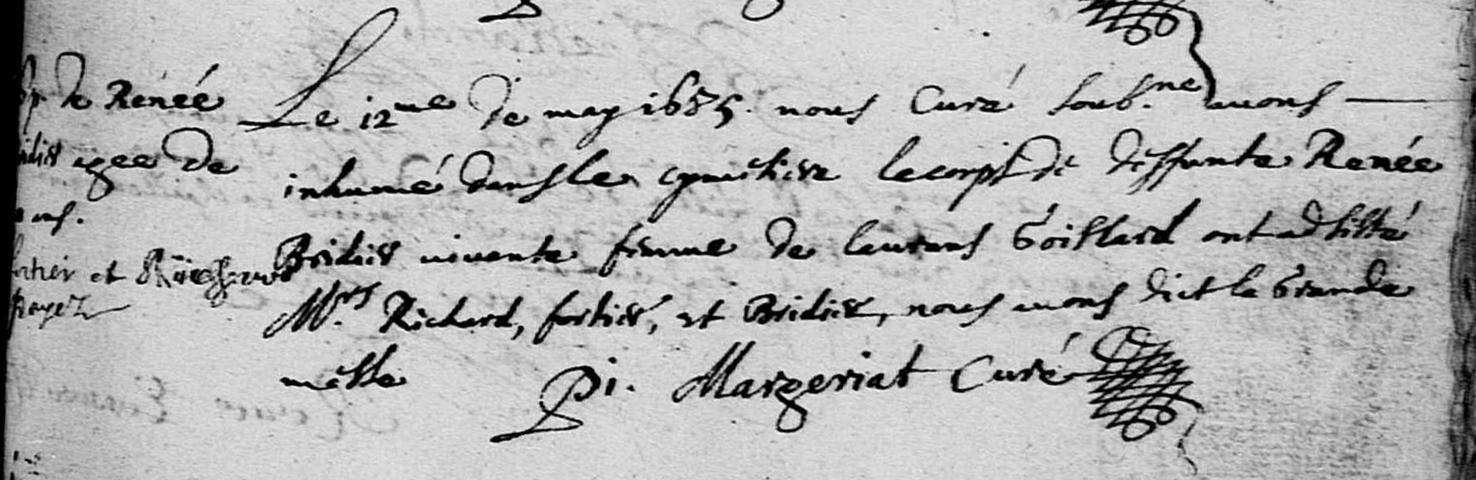 de Renée
agee de
ans.
fortier et
payez
Le 12me de may 1685. nous Curé soub.ne avons
inhumé dans le cymetiere le corps de deffunte Renée
Bridier vivante femme de laurens Goislard ont adsisté
Mrs Richard, fortier, et Bridier, nous avons dict la Grande
messe Pi. Margeriat Curé